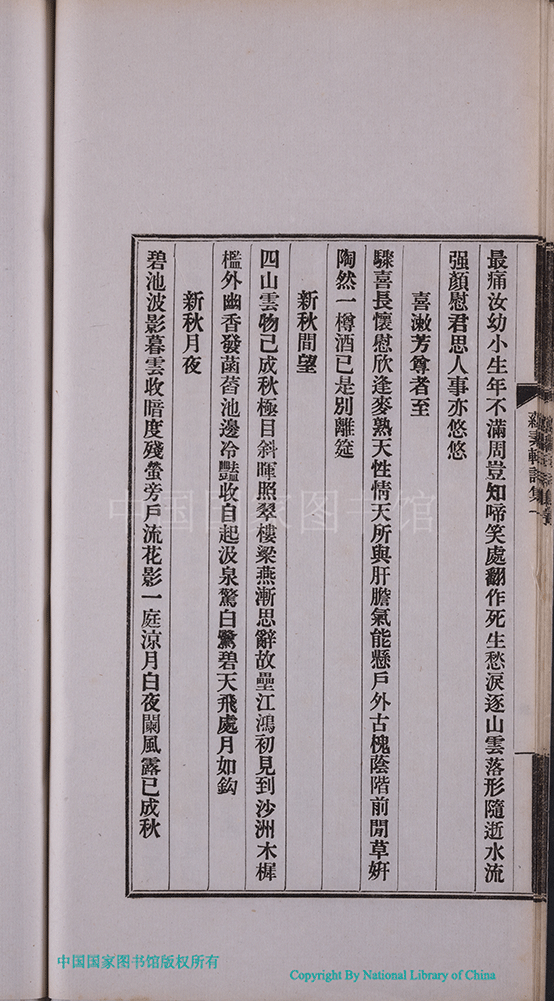 最痛汝幼小生年不滿周豈知啼笑處翻作死生愁淚逐山雲落形隨逝水流
强顏慰君思人事亦悠悠
喜漱芳尊者至
驟喜長懷慰欣逢麥熟天性情天所與肝膽氣能懸戶外古槐蔭階前閒草妍
陶然一樽酒已是別離筵
新秋間望
四山雲物已成秋極目斜暉照翠樓梁燕漸思辭故壘江鴻初見到沙洲木樨
檻外幽香發菡萏池邊冷豔收自起汲泉驚白鷺碧天飛處月如鈎
新秋月夜
碧池波影暮雲收暗度殘螢旁戶流花影一庭涼月白夜闌風露已成秋
中国国家图书馆
中国国家图书馆版权所有
Copyright By National Library of China